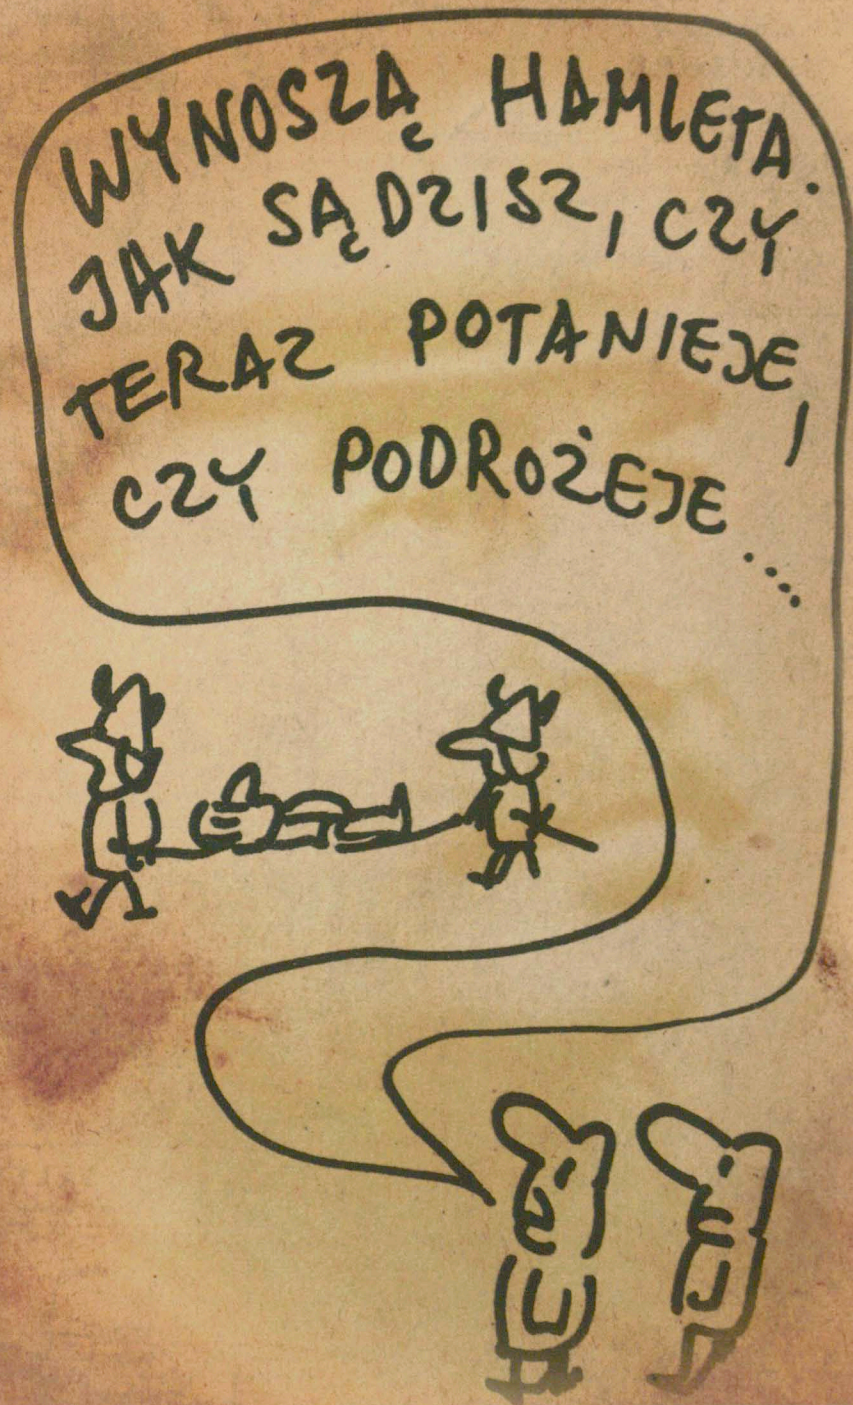 WYNOSZĄ HAMLETA.
JAK SĄDZISZ, CZY
TERAZ POTANIEJE,
CZY PODROŻEJE....